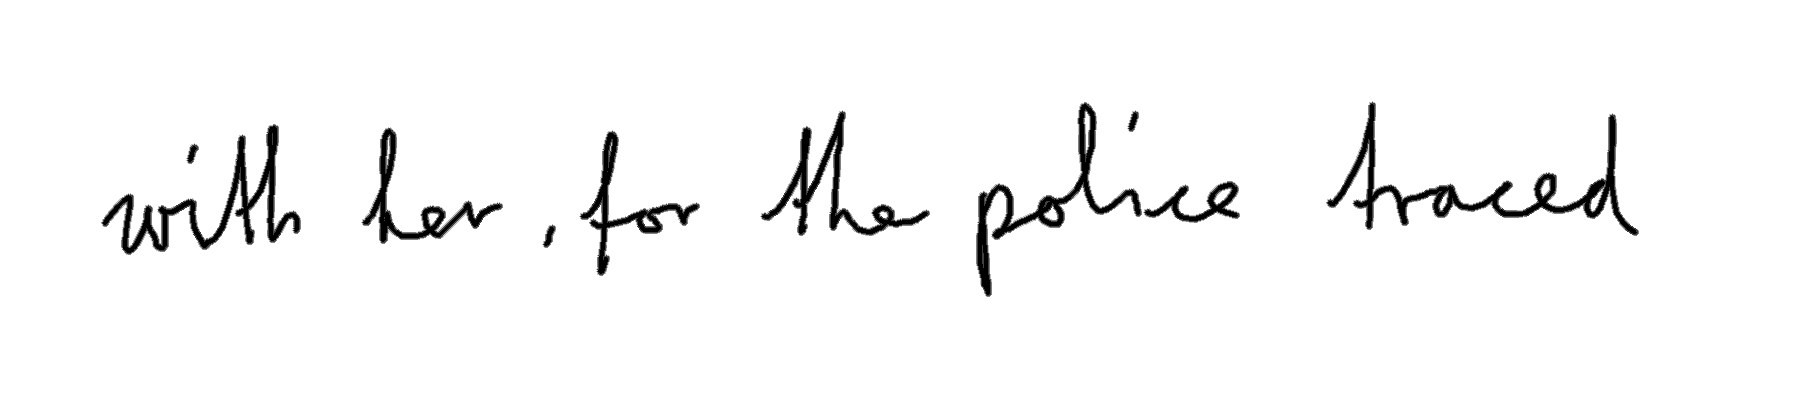 with her, for the police traced